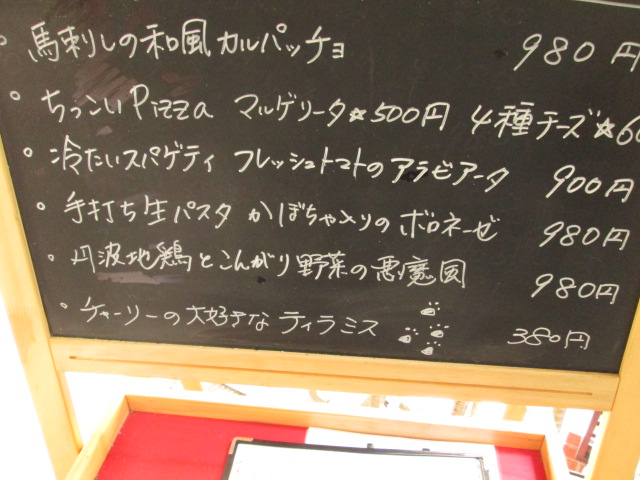 ・馬刺しの和風カルパッチョ 980円
・ちっこいPizza マルゲリータ☆500円 4種チーズ☆6
・冷たいスパゲティ フレッシュトマトのアラビアータ 900円
・手打ち生パスタ かぼちゃ入りのボロネーゼ 980円
・丹波地鶏とこんがり野菜の悪魔風 980円
・チャーリーの大好きな ティラミス 380円